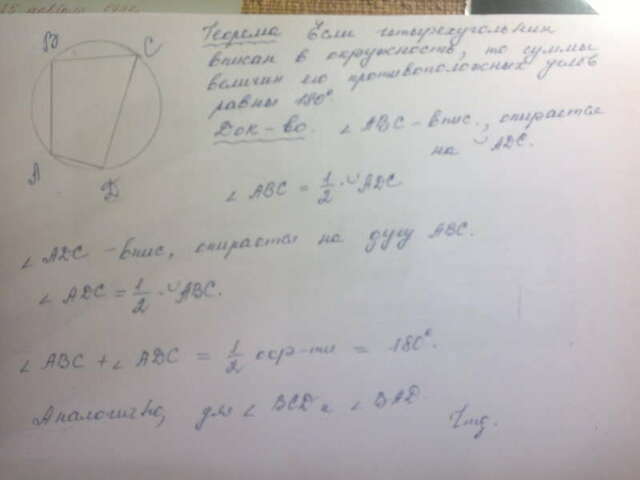 B
C
A
D
Теорема Если четырехугольник
вписан в окружность, то суммы
величин его противоположных углов
равны 180°
Док-во. ∠ ABC - впис., опирается
на ◡ ADC.
∠ ABC = 1/2 · ◡ADC
∠ ADC - впис, опирается на дугу ABC.
∠ ADC = 1/2 · ◡ABC.
∠ ABC + ∠ ADC = 1/2 окр-ти = 180°.
Аналогично, для ∠ BCD и ∠ BAD
Чтд.